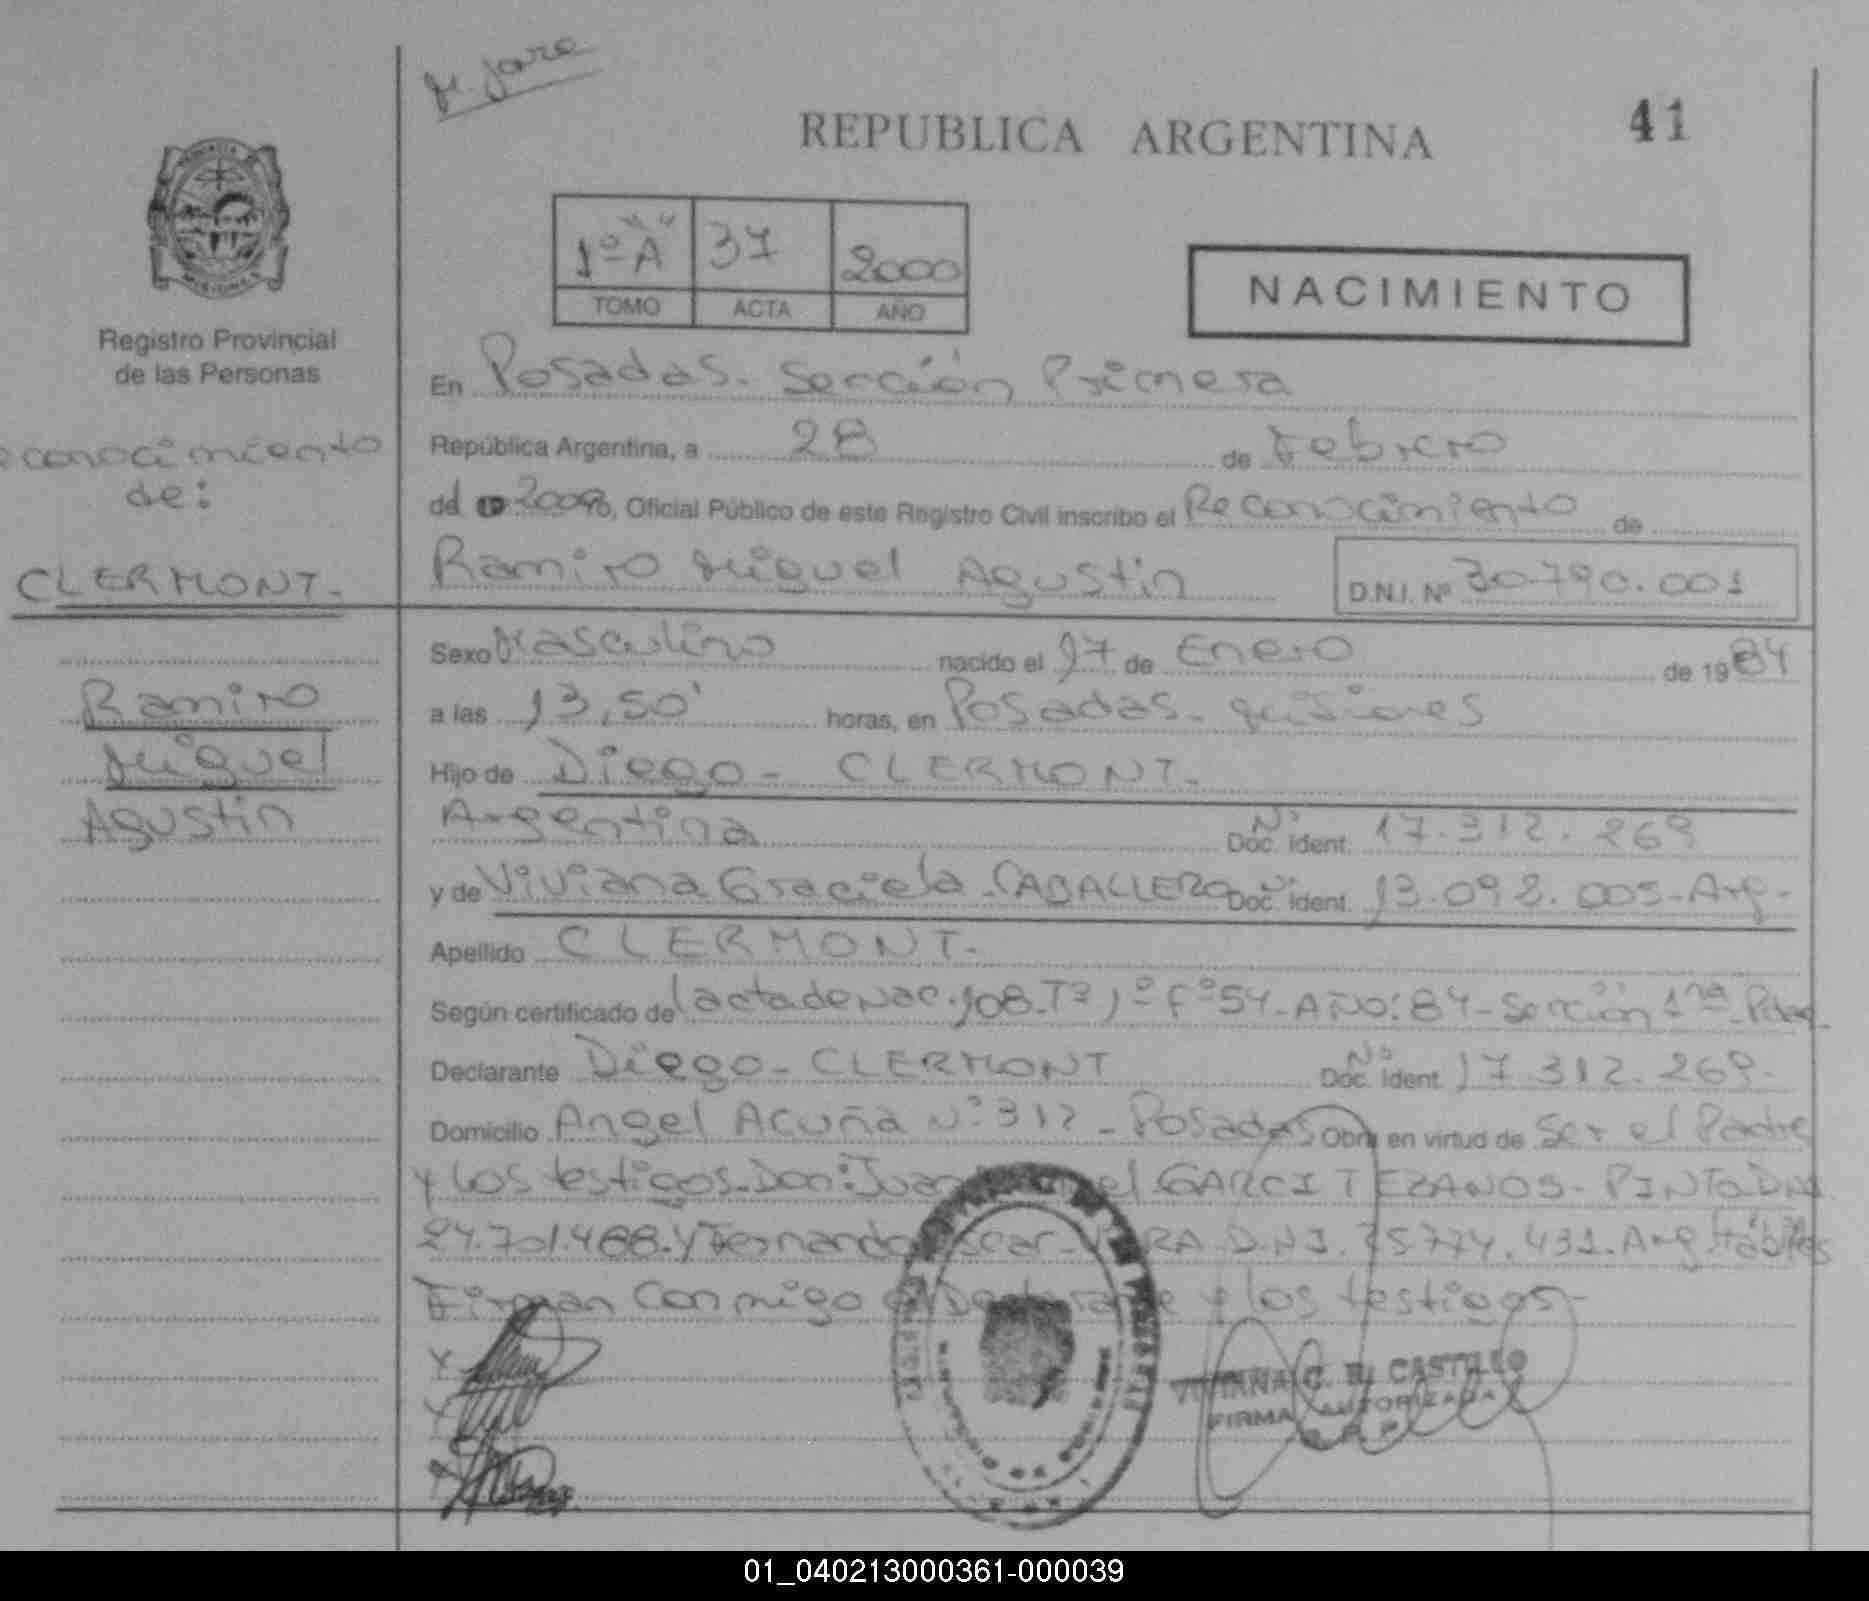 REPUBLICA ARGENTINA
41
1º "A" 37 2000
TOMO ACTA AÑO
NACIMIENTO
Registro Provincial
de las Personas
Reconocimiento
de:
CLERMONT.-
Ramiro
Miguel
Agustin
En Posadas - Sección Primera
República Argentina, a 28 de Febrero
del 2000, Oficial Público de este Registro Civil inscribo el Reconocimiento de
Ramiro Miguel Agustin D.N.I. Nº 30.790.001
Sexo Masculino nacido el 17 de Enero de 1984
a las 13,50' horas, en Posadas - Misiones
Hijo de Diego - CLERMONT.-
Argentina Doc. Ident. Nº 17.312.269
y de Viviana Graciela - CABALLERO Doc. Ident. Nº 13.092.005 - Arg -
Apellido CLERMONT.-
Según certificado de acta de Nac. 108 - Tº 1º - Fº 54 - AÑO: 84 - Sección 1ra -
Declarante Diego - CLERMONT Doc. Ident. Nº 17.312.269.-
Domicilio Angel Acuña Nº 312 - Posadas Obra en virtud de Ser el Padre
y los testigos - Don: Juan GARCI TEZANOS - PINTO DNI
24.701.488. y Fernando D.N.I. 25774.431. Arg. Hábiles
Firman Conmigo el Declarante y los testigos -
VIVIANA C. R. CASTILLO
FIRMA AUTORIZADA
01_040213000361-000039